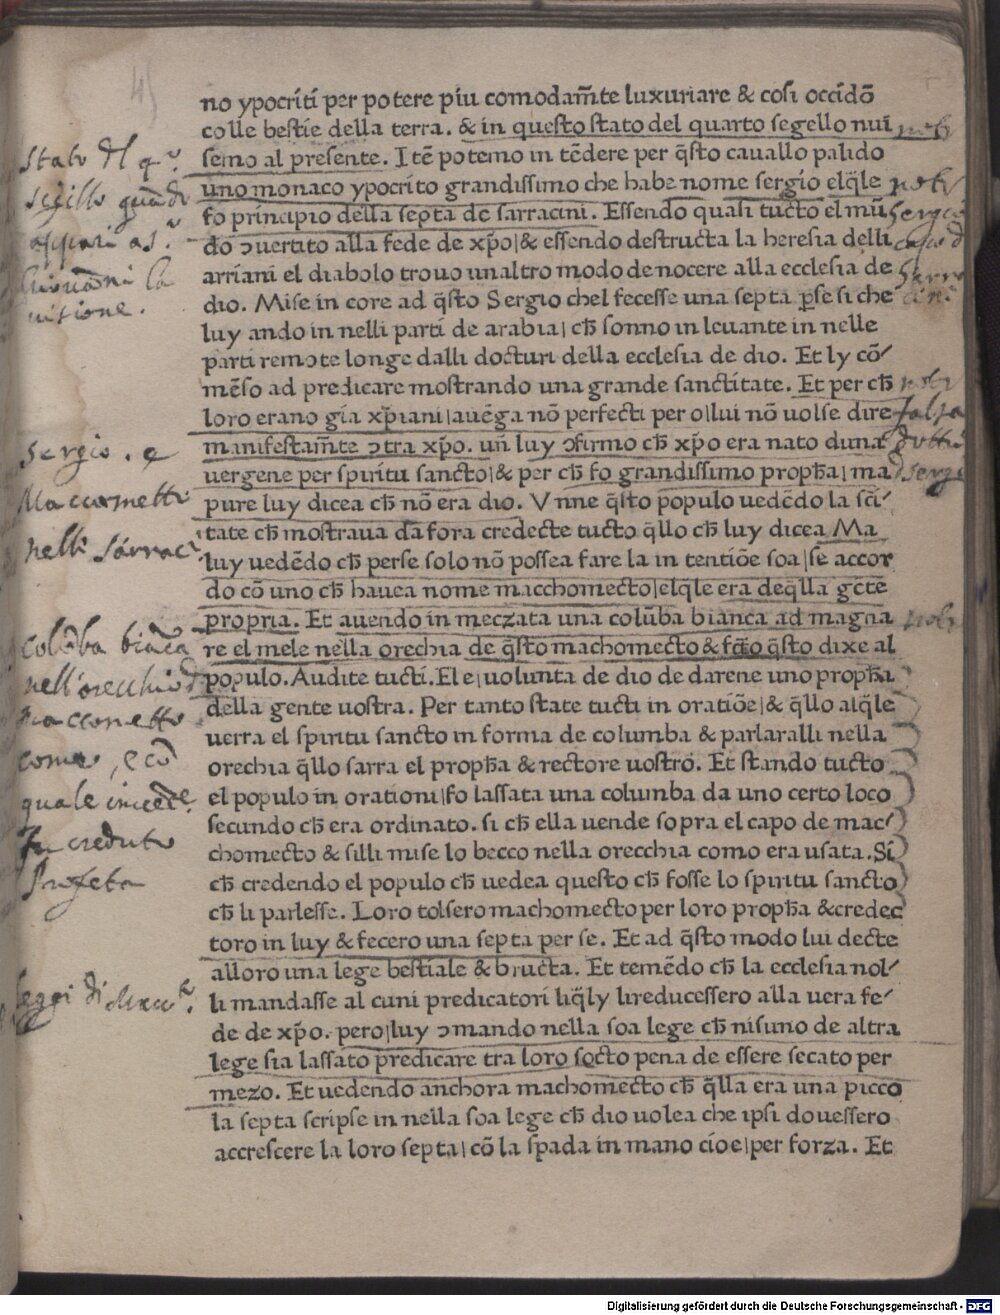 no ypocriti per potere piu comodam̃te luxuriare & cosi occidõ
colle bestie della terra. & in questo stato del quarto segello nui
semo al presente. Itẽ potemo in tẽdere per q̃sto cauallo palido
uno monaco ypocrito grandissimo che habe nome sergio elq̃le
fo principio della septa de sarracini. Essendo quasi tucto el mũ
do ɔuertito alla fede de xp̃o| & essendo destructa la heresia delli
arriani el diabolo trouo unaltro modo de nocere alla ecclesia de
dio. Mise in core ad q̃sto Sergio chel fecesse una septa ꝑse si che
luy ando in nelli parti de arabia| cħ sonno in leuante in nelle
parti remote longe dalli docturi della ecclesia de dio. Et ly cõ⸗
mẽso ad predicare mostrando una grande sanctitate. Et per cħ
loro erano gia xp̃iani| auẽga nõ perfecti per o| lui nõ uolse dire
manifestam̃te ɔtra xp̃o. uñ luy ɔfirmo cħ xp̃o era nato duna
uergene per spiritu sancto| & per cħ fo grandissimo propħa| ma
pure luy dicea cħ nõ era dio. Vnne q̃sto populo uedẽdo la sc̃i⸗
tate cħ mostraua da fora credecte tucto q̃llo cħ luy dicea Ma
luy uedẽdo cħ perse solo nõ possea fare la in tentiõe soa| se accor
do cõ uno cħ hauea nome macchomecto| elq̃le era deq̃lla gẽte
propria. Et auendo in meczata una colũba bianca ad magna
re el mele nella orechia de q̃sto machomecto & fc̃to q̃sto dixe al
populo. Audite tucti. El e| uolunta de dio de darene uno propħa
della gente uostra. Per tanto state tucti in oratiõe| & q̃llo alq̃le
uerra el spiritu sancto in forma de columba & parlaralli nella
orechia q̃llo sarra el propħa & rectore uostro. Et stando tucto
el populo in orationi| fo lassata una columba da uno certo loco
secundo cħ era ordinato. si cħ ella uende sopra el capo de mac⸗
chomecto & silli mise lo becco nella orecchia como era usata. Si
cħ credendo el populo cħ uedea questo cħ fosse lo spiritu sancto
cħ li parlesse. Loro tolsero machomecto per loro propħa & credec
toro in luy & fecero una septa per se. Et ad q̃sto modo lui decte
alloro una lege bestiale & bructa. Et temẽdo cħ la ecclesia nol⸗
li mandasse al cuni predicatori liq̃ly lireducessero alla uera fe⸗
de de xp̃o. pero| luy ɔmando nella soa lege cħ nisuno de altra
lege sia lassato predicare tra loro socto pena de essere secato per
mezo. Et uedendo anchora machomecto cħ q̃lla era una picco
la septa scripse in nella soa lege cħ dio uolea che ipsi douessero
accrescere la loro septa| cõ la spada in mano cioe| per forza. Et
sergio. e
Maccometto
nelli Sarrac.
colõba biãca
nell'orecchio d
Maccometto
come, e cõ
fu creduto
Profeta
leggi di Macc.
Digitalisierung gefördert durch die Deutsche Forschungsgemeinschaft - DFG